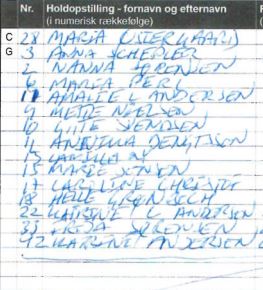 Nr. Holdopstilling - fornavn og efternavn
(i numerisk rækkefølge)
C 28 MARIA ØSTERGAARD
G 3 ANNA SCHEPLER
2 NANNA SØRENSEN
6 MAREA PERI
11 AMALIE L ANDERSEN
9 METTE NIELSEN
10 GITTE SVENDSEN
14 ANNIKA BENGTSSON
13 CAMILLA
15 MARIE JENSEN
17 CAROLINE CHRISTI
18 HELLE GRØNBECH
22 KATRINE L ANDERSEN
33 FRIDA SØRENSEN
42 KATRINE ANDERSEN